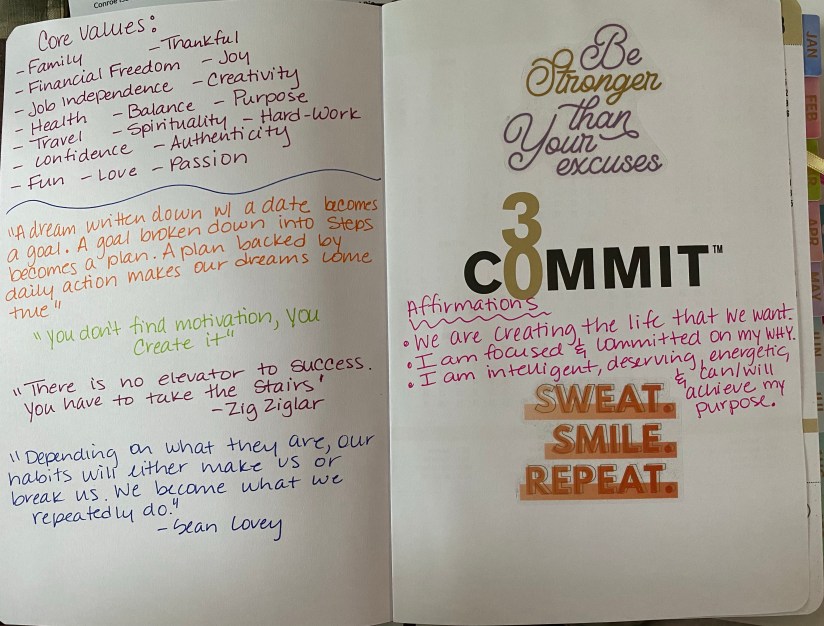 Core Values:
- Family - Thankful
- Financial Freedom - Joy
- Job Independence - Creativity
- Health - Balance - Purpose
- Travel - Spirituality - Hard-Work
- Confidence - Authenticity
- Fun - Love - Passion
"A dream written down w/ a date becomes
a goal. A goal broken down into steps
becomes a plan. A plan backed by
daily action makes our dreams come
true"
"You don't find motivation, you
create it"
"There is no elevator to success.
You have to take the stairs'
- Zig Ziglar
"Depending on what they are, our
habits will either make us or
break us. We become what we
repeatedly do."
- Sean Covey
Be
Stronger
than
Your
excuses
30
COMMIT™
Affirmations
• We are creating the life that we want.
• I am focused & committed on my WHY.
• I am intelligent, deserving, energetic,
& can/will
achieve my
purpose.
SWEAT.
SMILE.
REPEAT.
JAN
FEB
APR
MAY
JUN